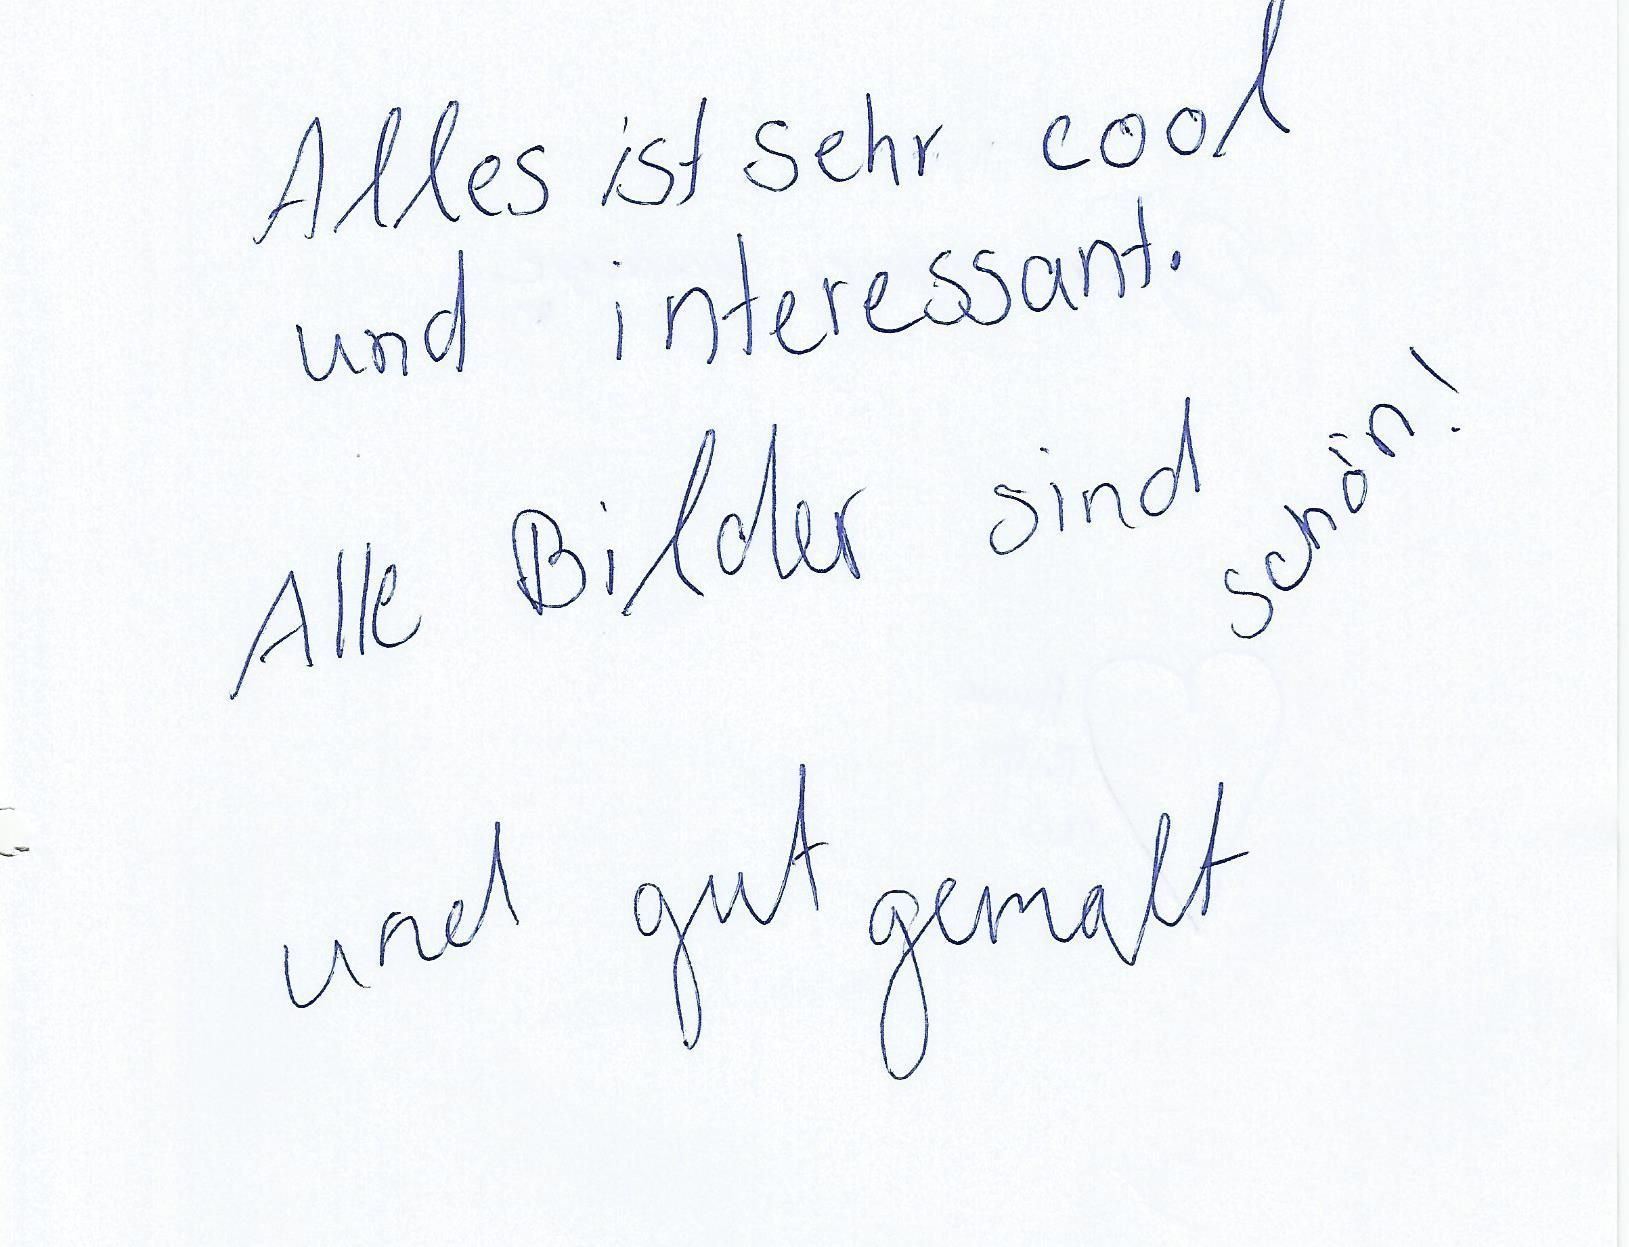 Alles ist sehr cool
und interessant.
Alle Bilder sind schön!
und gut gemalt